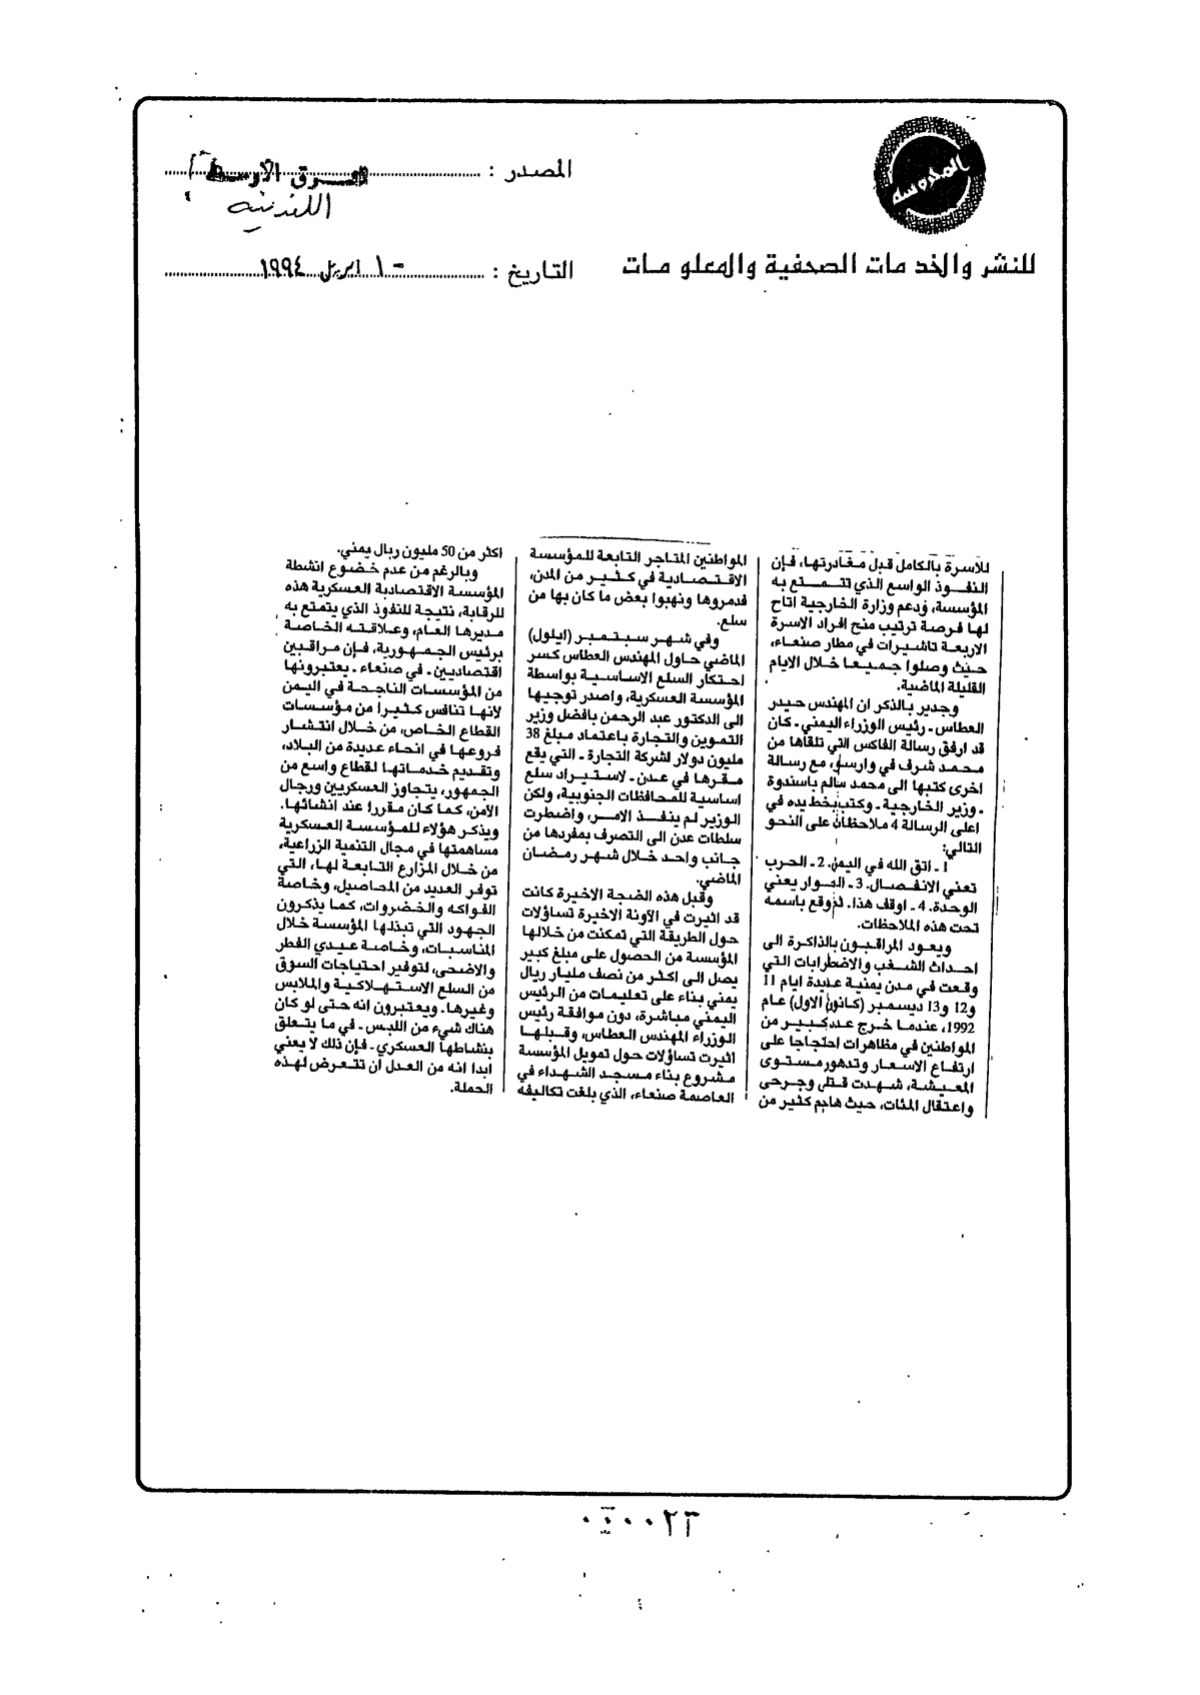 المحروسة
المصدر : الشرق الأوسط
اللندنية
للنشر والخدمات الصحفية والمعلومات
التاريخ : ١٠ ابريل ١٩٩٤
للاسرة بالكامل قبل مغادرتها، فإن
النفوذ الواسع الذي تتمتع به
المؤسسة، ودعم وزارة الخارجية اتاح
لها فرصة ترتيب منح افراد الاسرة
الاربعة تاشيرات في مطار صنعاء،
حيث وصلوا جميعا خلال الايام
القليلة الماضية.
وجدير بالذكر ان المهندس حيدر
العطاس ـ رئيس الوزراء اليمني ـ كان
قد ارفق رسالة الفاكس التي تلقاها من
محمد شرف في وارسو، مع رسالة
اخرى كتبها الى محمد سالم باسندوة
ـ وزير الخارجية ـ وكتب بخط يده في
اعلى الرسالة 4 ملاحظات على النحو
التالي:
1 ـ اتق الله في اليمن. 2 ـ الحرب
تعني الانفصال. 3 ـ الحوار يعني
الوحدة. 4 ـ اوقف هذا. ووقع باسمه
تحت هذه الملاحظات.
ويعود المراقبون بالذاكرة الى
احداث الشغب والاضطرابات التي
وقعت في مدن يمنية عديدة ايام 11
و12 و13 ديسمبر (كانون الاول) عام
1992، عندما خرج عدد كبير من
المواطنين في مظاهرات احتجاجا على
ارتفاع الاسعار وتدهور مستوى
المعيشة، شهدت قتلى وجرحى
واعتقال المئات، حيث هاجم كثير من
المواطنين المتاجر التابعة للمؤسسة
الاقتصادية في كثير من المدن،
فدمروها ونهبوا بعض ما كان بها من
سلع.
وفي شهر سبتمبر (ايلول)
الماضي حاول المهندس العطاس كسر
احتكار السلع الاساسية بواسطة
المؤسسة العسكرية، واصدر توجيها
الى الدكتور عبد الرحمن بافضل وزير
التموين والتجارة باعتماد مبلغ 38
مليون دولار لشركة التجارة ـ التي يقع
مقرها في عدن ـ لاستيراد سلع
اساسية للمحافظات الجنوبية، ولكن
الوزير لم ينفذ الامر، واضطرت
سلطات عدن الى التصرف بمفردها من
جانب واحد خلال شهر رمضان
الماضي.
وقبل هذه الضجة الاخيرة كانت
قد اثيرت في الآونة الاخيرة تساؤلات
حول الطريقة التي تمكنت من خلالها
المؤسسة من الحصول على مبلغ كبير
يصل الى اكثر من نصف مليار ريال
يمني بناء على تعليمات من الرئيس
اليمني مباشرة، دون موافقة رئيس
الوزراء المهندس العطاس، وقبلها
اثيرت تساؤلات حول تمويل المؤسسة
مشروع بناء مسجد الشهداء في
العاصمة صنعاء، الذي بلغت تكاليفه
اكثر من 50 مليون ريال يمني.
وبالرغم من عدم خضوع انشطة
المؤسسة الاقتصادية العسكرية هذه
للرقابة، نتيجة للنفوذ الذي يتمتع به
مديرها العام، وعلاقته الخاصة
برئيس الجمهورية، فإن مراقبين
اقتصاديين ـ في صنعاء ـ يعتبرونها
من المؤسسات الناجحة في اليمن
لانها تنافس كثيرا من مؤسسات
القطاع الخاص، من خلال انتشار
فروعها في انحاء عديدة من البلاد،
وتقديم خدماتها لقطاع واسع من
الجمهور، يتجاوز العسكريين ورجال
الامن، كما كان مقررا عند انشائها.
ويذكر هؤلاء للمؤسسة العسكرية
مساهمتها في مجال التنمية الزراعية،
من خلال المزارع التابعة لها، التي
توفر العديد من المحاصيل، وخاصة
الفواكه والخضروات، كما يذكرون
الجهود التي تبذلها المؤسسة خلال
المناسبات، وخاصة عيدي الفطر
والاضحى، لتوفير احتياجات السوق
من السلع الاستهلاكية والملابس
وغيرها. ويعتبرون انه حتى لو كان
هناك شيء من اللبس ـ في ما يتعلق
بنشاطها العسكري ـ فإن ذلك لا يعني
ابدا انه من العدل ان تتعرض لهذه
الحملة.